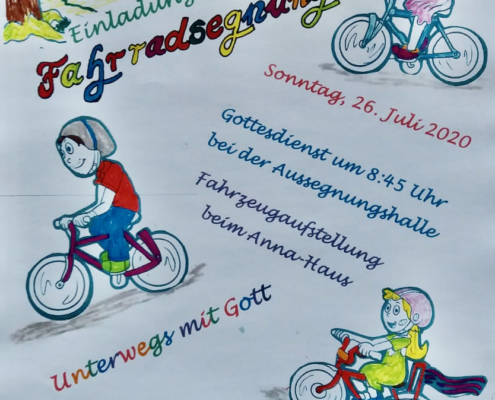 Einladung
Fahrradsegnung
Sonntag, 26. Juli 2020
Gottesdienst um 8:45 Uhr
bei der Aussegnungshalle
Fahrzeugaufstellung
beim Anna-Haus
Unterwegs mit Gott